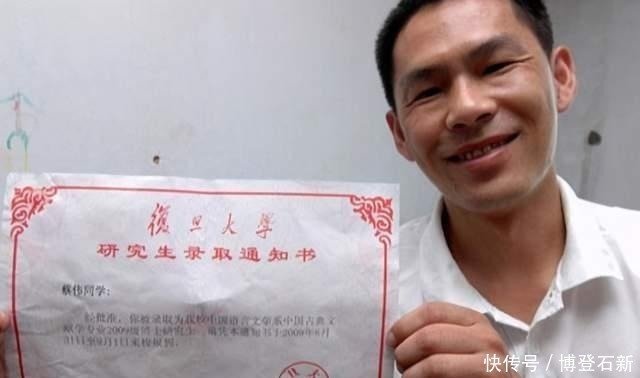 復旦大學
研究生录取通知书
蔡伟同学：
经批准，你被录取为我校中国语言文学系中国古典文
献学专业2009级博士研究生，请凭本通知书于2009年8月
31日至9月1日来校报到。
快传号／博登石新